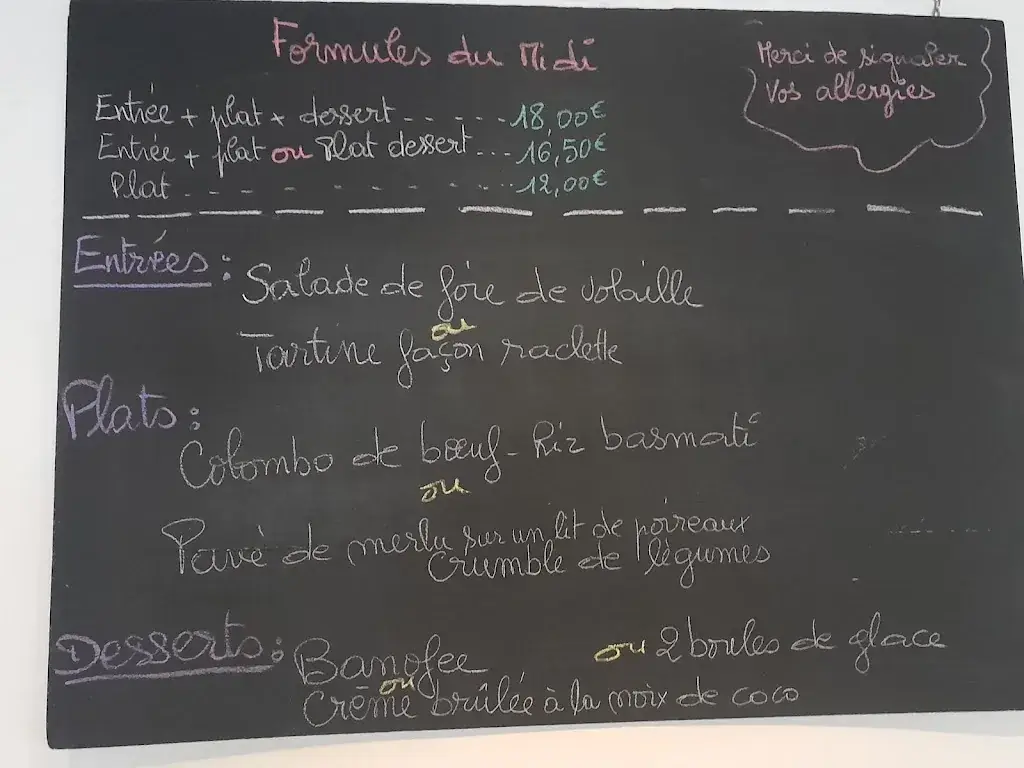 Formules du Midi
Merci de signaler
Vos allergies
Entrée + plat + dessert - - - - - - 18,00€
Entrée + plat ou Plat dessert - - - 16,50€
Plat - - - - - - - - - - - - 12,00€
Entrées :
Salade de foie de volaille
ou
Tartine façon raclette
Plats :
Colombo de bœuf - Riz basmati
ou
Pavé de merlu sur un lit de poireaux
Crumble de légumes
Desserts : Banofee ou 2 boules de glace
ou
Crème brûlée à la noix de coco